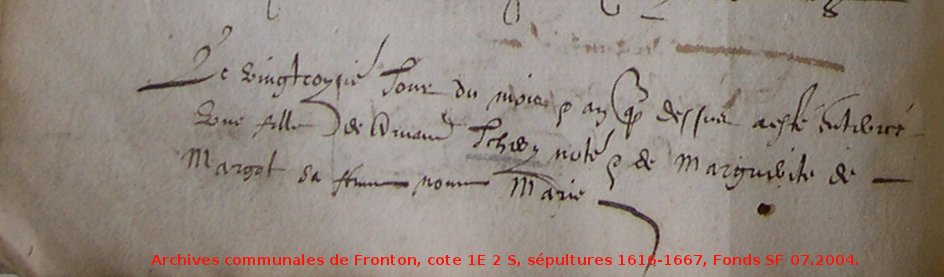 Le vingtroysie Jour du mois & an q dessus a esté enterré
une fille de Arnaud noté & de Marguerite de
Margot sa femme nommee Marie
Archives communales de Fronton, cote 1E 2 S, sépultures 1616-1667, Fonds SF 07.2004.